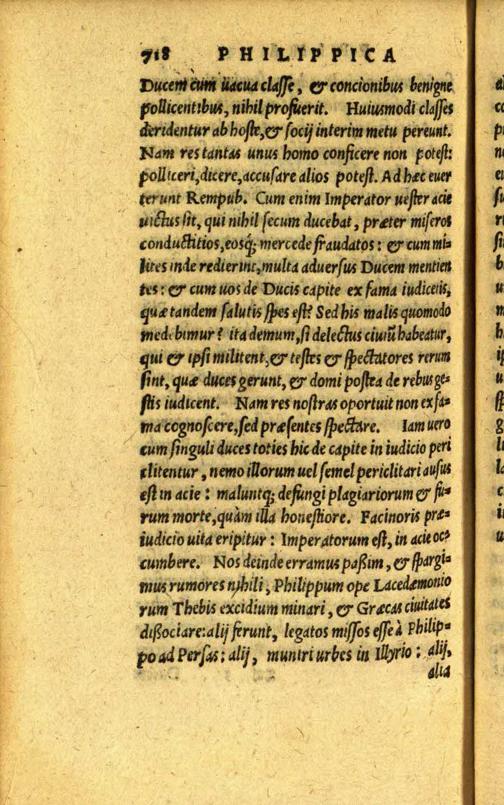 718 PHILIPPICA
Ducem cum uacua classe, & concionibus benigne
pollicentibus, nihil profuerit. Huiusmodi classes
deridentur ab hoste, & socij interim metu pereunt.
Nam res tantas unus homo conficere non potest:
polliceri, dicere, accusare alios potest. Ad hæc euer
terunt Rempub. Cum enim Imperator uester acie
uictus sit, qui nihil secum ducebat, præter miseros
conductitios, eosq; mercede fraudatos: & cum mi=
lites inde redierint, multa aduersus Ducem mentien
tes: & cum uos de Ducis capite ex fama iudicetis,
quæ tandem salutis spes est? Sed his malis quomodo
medebimur? ita demum, si delectus ciuiũ habeatur,
qui & ipsi militent, & testes & spectatores rerum
sint, quæ duces gerunt, & domi postea de rebus ge=
stis iudicent. Nam res nostras oportuit non ex fa=
ma cognoscere, sed præsentes spectare. Iam uero
cum singuli duces toties hic de capite in iudicio peri
clitentur, nemo illorum uel semel periclitari ausus
est in acie: maluntq; defungi plagiariorum & fu=
rum morte, quàm illa honestiore. Facinoris præ=
iudicio uita eripitur: Imperatorum est, in acie oc=
cumbere. Nos deinde erramus paßim, & spargi=
mus rumores nihili, Philippum ope Lacedæmonio
rum Thebis excidium minari, & Græcas ciuitates
dißociare: alij ferunt, legatos missos esse à Philip=
po ad Persas: alij, muniri urbes in Illyrio: alij,
alia